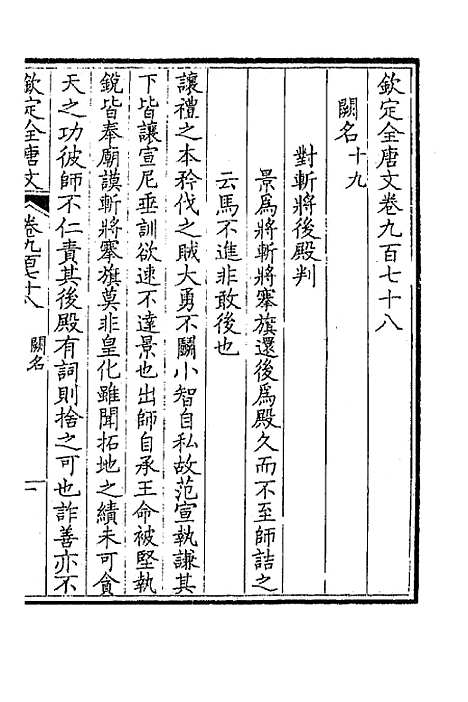 欽定全唐文卷九百七十八
闕名十九
對斬將後殿判
景為將斬將搴旗還後為殿久而不至師詰之
云馬不進非敢後也
讓禮之本矜伐之賊大勇不鬭小智自私故范宣執謙其
下皆讓宣尼垂訓欲速不達景也出師自承王命被堅執
銳皆奉廟謨斬將搴旗莫非皇化雖聞拓地之績未可貪
天之功彼師不仁責其後殿有詞則捨之可也詐善亦不
欽定全唐文 卷九百七十八 闕名 一